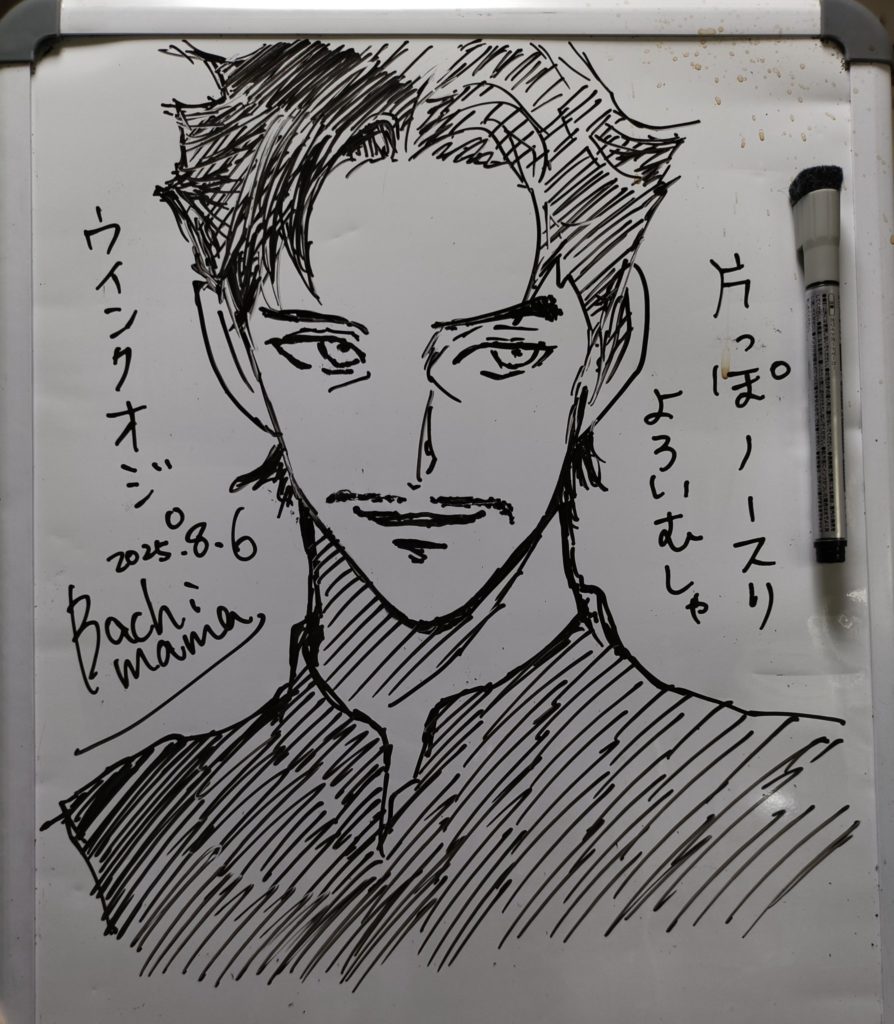 片っぽノースリ
よろいむしゃ
ウインクオジ
2025.8.6
Bachi
mama